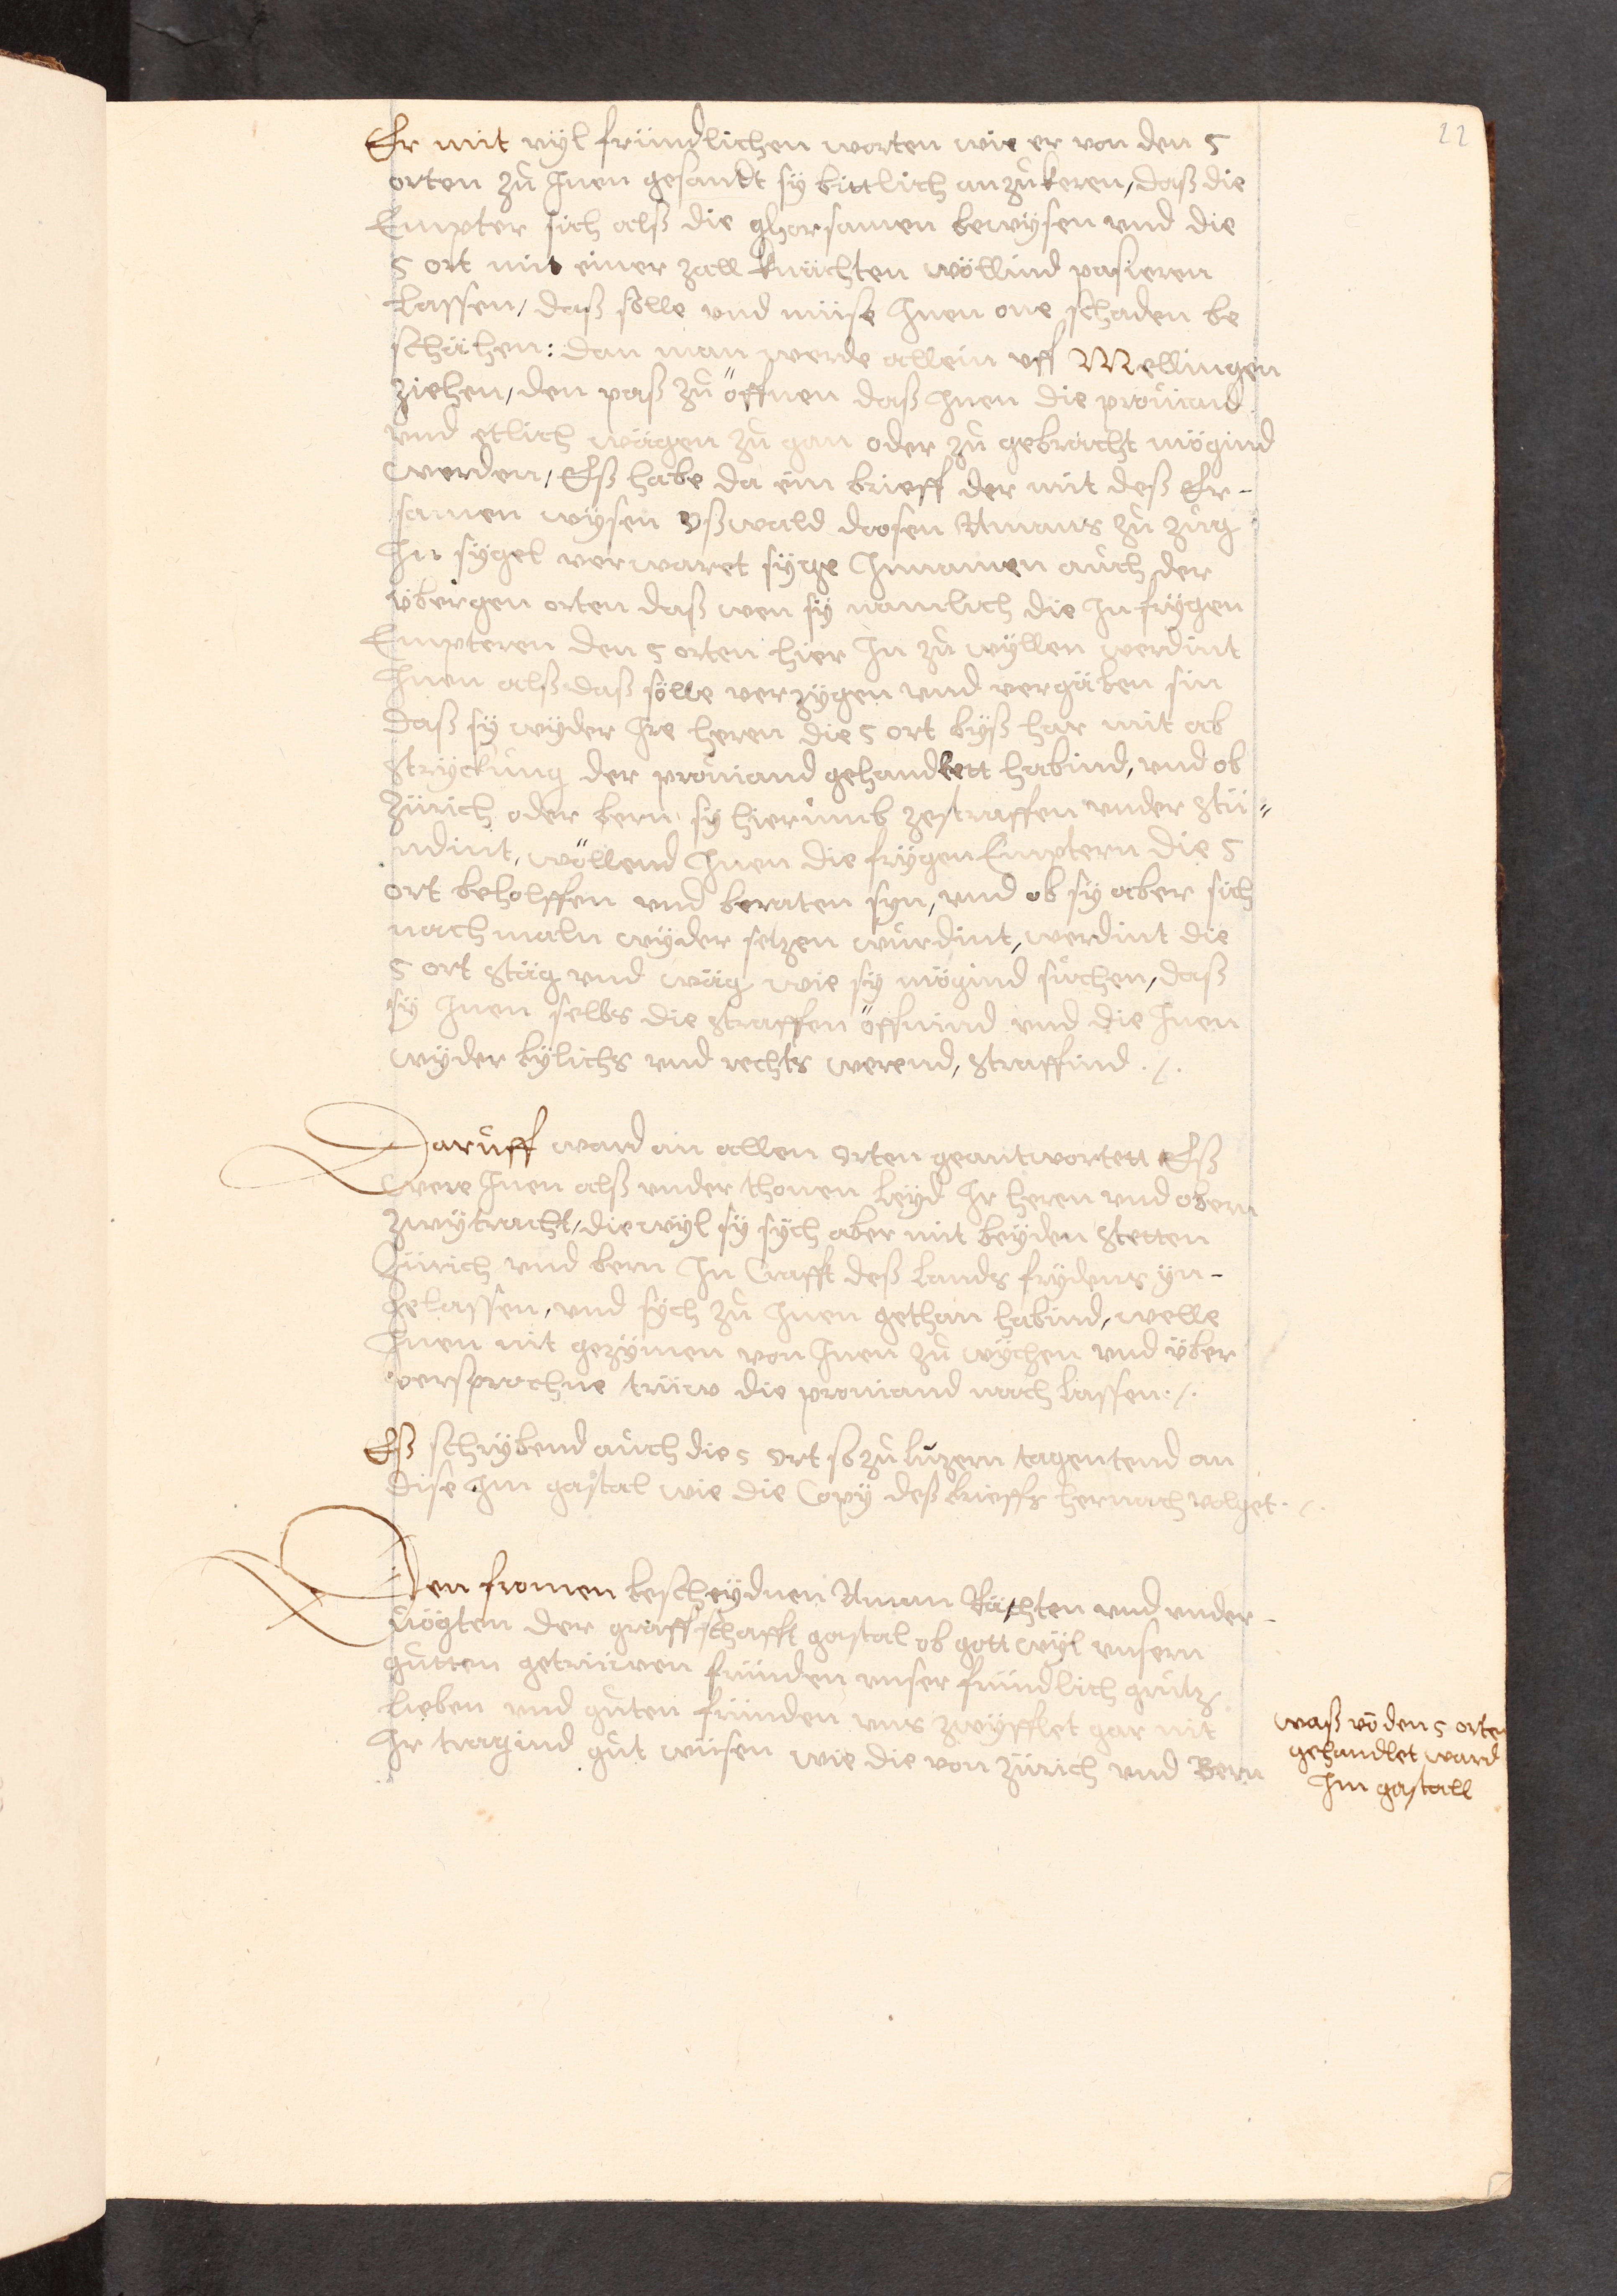 22
Er mit vyl fründlichen worten wie er von den 5
orten zů Inen gesandt sÿ bittlich anzůkeren, daß die
Empter sich alß die ghorsamen bewÿsen vnd die
5 ort mit einer zall knächten wöllind pasieren
Lassen, daß sölle vnd müse Inen one schaden be
schächen: dan man werde allein vff Mellingen
ziehen, den paß zů öffnen daß Inen die profiand
vnd etlich wägen zů gan oder zů gebracht mögind
werden, Eß habe da ein brieff der mit deß Er-
samen wÿsen Oßwald doosen Amans zů zug
In sÿgel verwaret sÿge Innamen auch der
übergen orten daß wen sÿ namlich die In frÿgen
Empteren den 5 orten hier In zů wÿllen werdint
Inen alß daß sölle verzÿgen vnd vergäben sin
daß sÿ wÿder Ire heren die 5 ort bÿß har mit ab
strÿckung der profiand gehandlett habind, vnd ob
Zürich oder bern sÿ hierumb zestraffen vnder stü-
ndint, wöllend Inen die frÿgen Emptern die 5
ort beholffen vnd beraten syn, vnd ob sÿ aber sich
nach maln wÿder setzen wurdint, werdint die
5 ort stäg vnd wäg wie sÿ mögind sůchen, daß
sÿ Inen selbs die strassen öffnind vnd die Inen
wÿder bÿlichs vnd rechts werend, straffind ./.
Daruff ward an allen orten geantwortett Eß
were Inen alß vnder thonen leÿd Ir heren vnd obern
zwÿtracht, die wÿl sÿ sÿch aber mit beÿden stetten
Zürich vnd bern In Crafft deß Lands frÿdens ÿn-
gelassen, vnd sÿch zů Inen gethan habind, welle
Inen nit gezÿmen von Inen zů wÿchen vnd über
versprochne trüw die profiand nach lassen ./.
Eß schrÿbend auch die 5 ort so zů luzern tagentend an
dise Im gastal wie die Copÿ deß brieffs hernach volget ./.
Den fromen bescheÿdnen Aman Rächten vnd vnder-
vögten der graffschafft gastal ob gott wÿl vnsern
gůtten getrüwen fründen vnser fründlich grůtz
lieben vnd gůten fründen vns zwÿfflet gar nit
Ir tragind gůt wüsen wie die von Zürich vnd Bern
waß vō den 5 orten
gehandlet ward
Im gastall